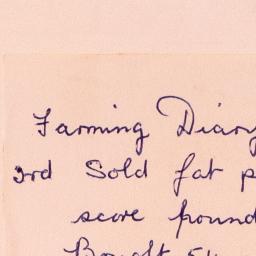 Farming Diary
3rd Sold fat p
score pound
Bought 54